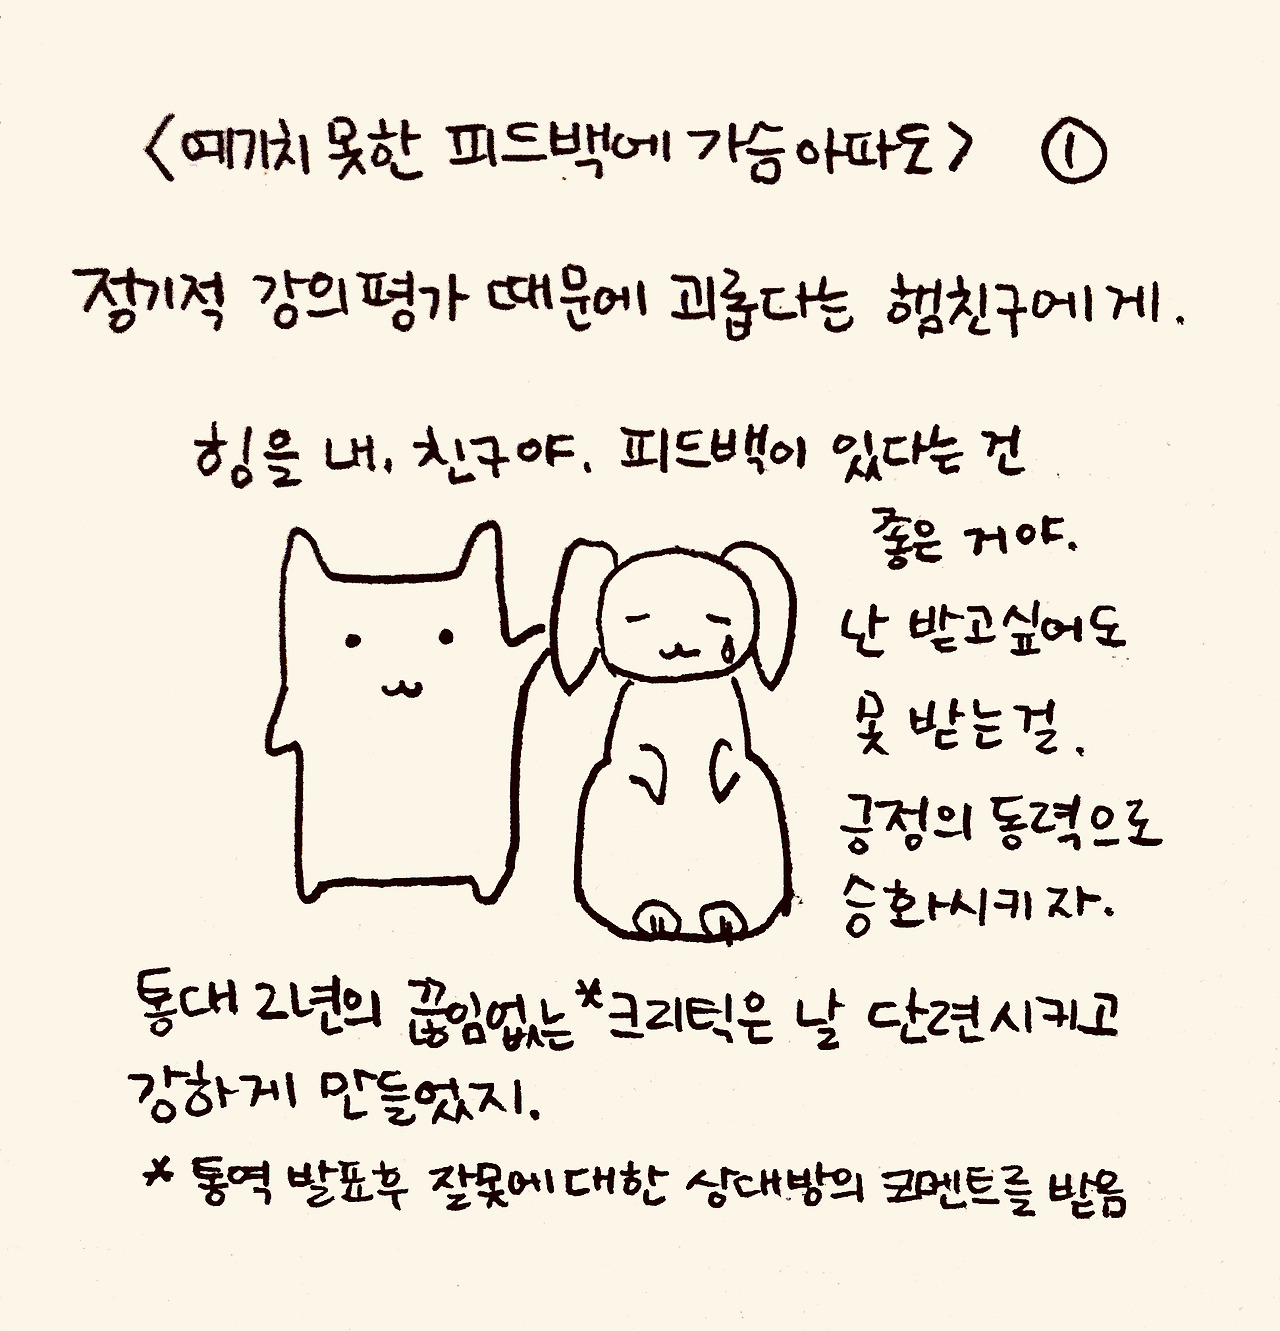 <예기치 못한 피드백에 가슴아파도> ①
정기적 강의평가 때문에 괴롭다는 햄친구에게.
힘을 내, 친구야. 피드백이 있다는 건
좋은 거야.
난 받고싶어도
못 받는걸.
긍정의 동력으로
승화시키자.
통대 2년의 끊임없는 *크리틱은 날 단련시키고
강하게 만들었지.
* 통역 발표후 잘못에 대한 상대방의 코멘트를 받음